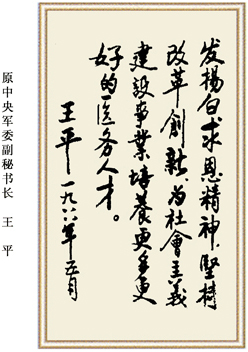 发揚白求恩精神,堅持
改革創新,为社會主義
建設事業培養更多更
好的医务人才。
王平一九八六年五月
原中央军委副秘书长 王 平